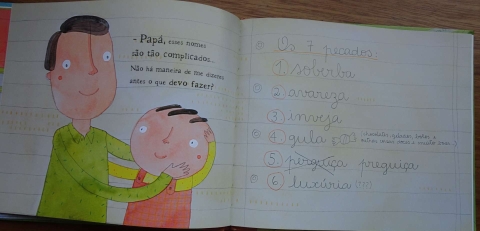 - Papá, esses nomes
são tão complicados...
Não há maneira de me dizeres
antes o que devo fazer?
Os 7 pecados:
1 soberba
2 avareza
3 inveja
4 gula
5 perguiça preguiça
6 luxúria